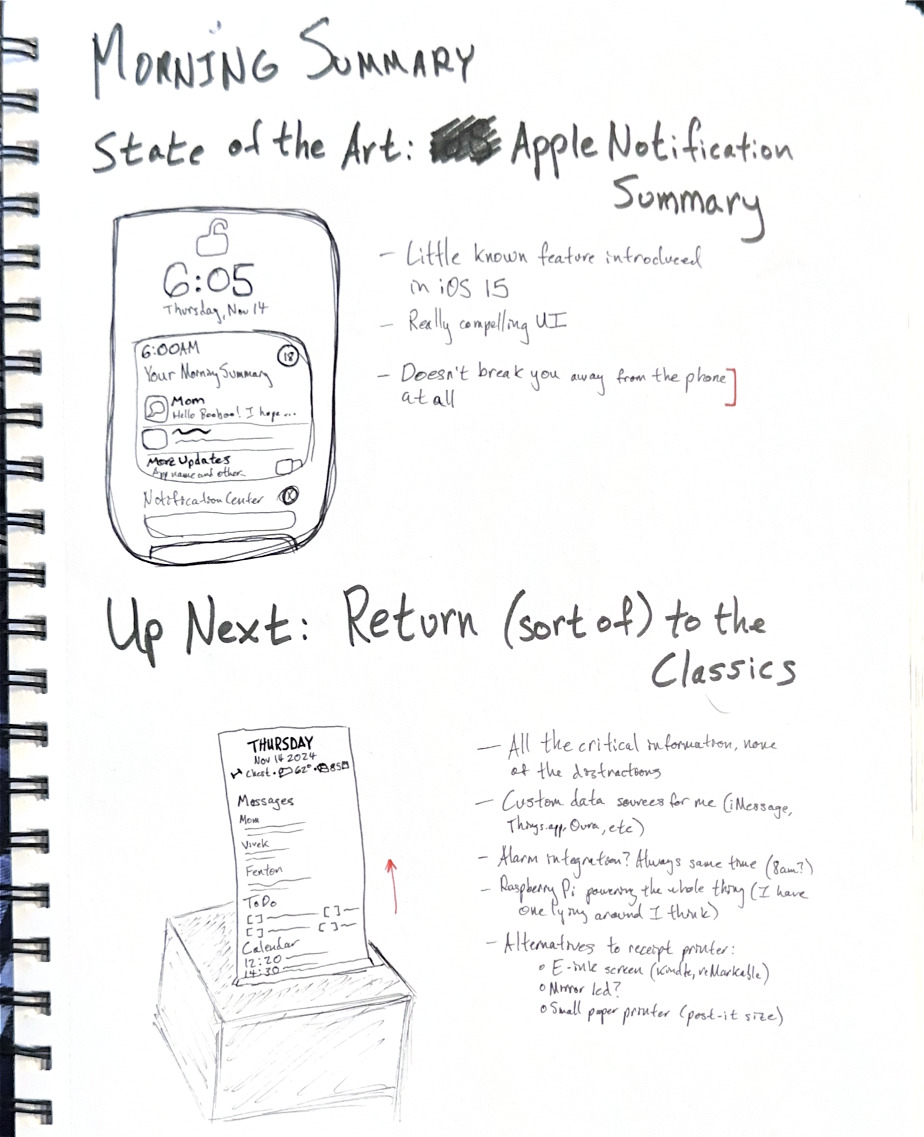 MORNING SUMMARY
State of the Art: Apple Notification
Summary
6:05
Thursday, Nov 14
6:00AM
18
Your Morning Summary
Mom
Hello Booboo! I hope...
More Updates
App name and other
Notification Center
x
- Little known feature introduced
in iOS 15
- Really compelling UI
- Doesn't break you away from the phone]
at all
Up Next: Return (sort of) to the
Classics
THURSDAY
Nov 14 2024
Chest • 62° • 85
Messages
Mom
Vivek
Fenton
ToDo
[ ] [ ]
[ ] [ ]
Calendar
12:20
14:30
- All the critical information, none
of the distractions
- Custom data sources for me (iMessage,
Things.app, Oura, etc)
- Alarm integration? Always same time (8am?)
- Raspberry Pi powering the whole thing (I have
one lying around I think)
- Alternatives to receipt printer:
o E-ink screen (Kindle, reMarkable)
o Mirror lcd?
o Small paper printer (post-it size)